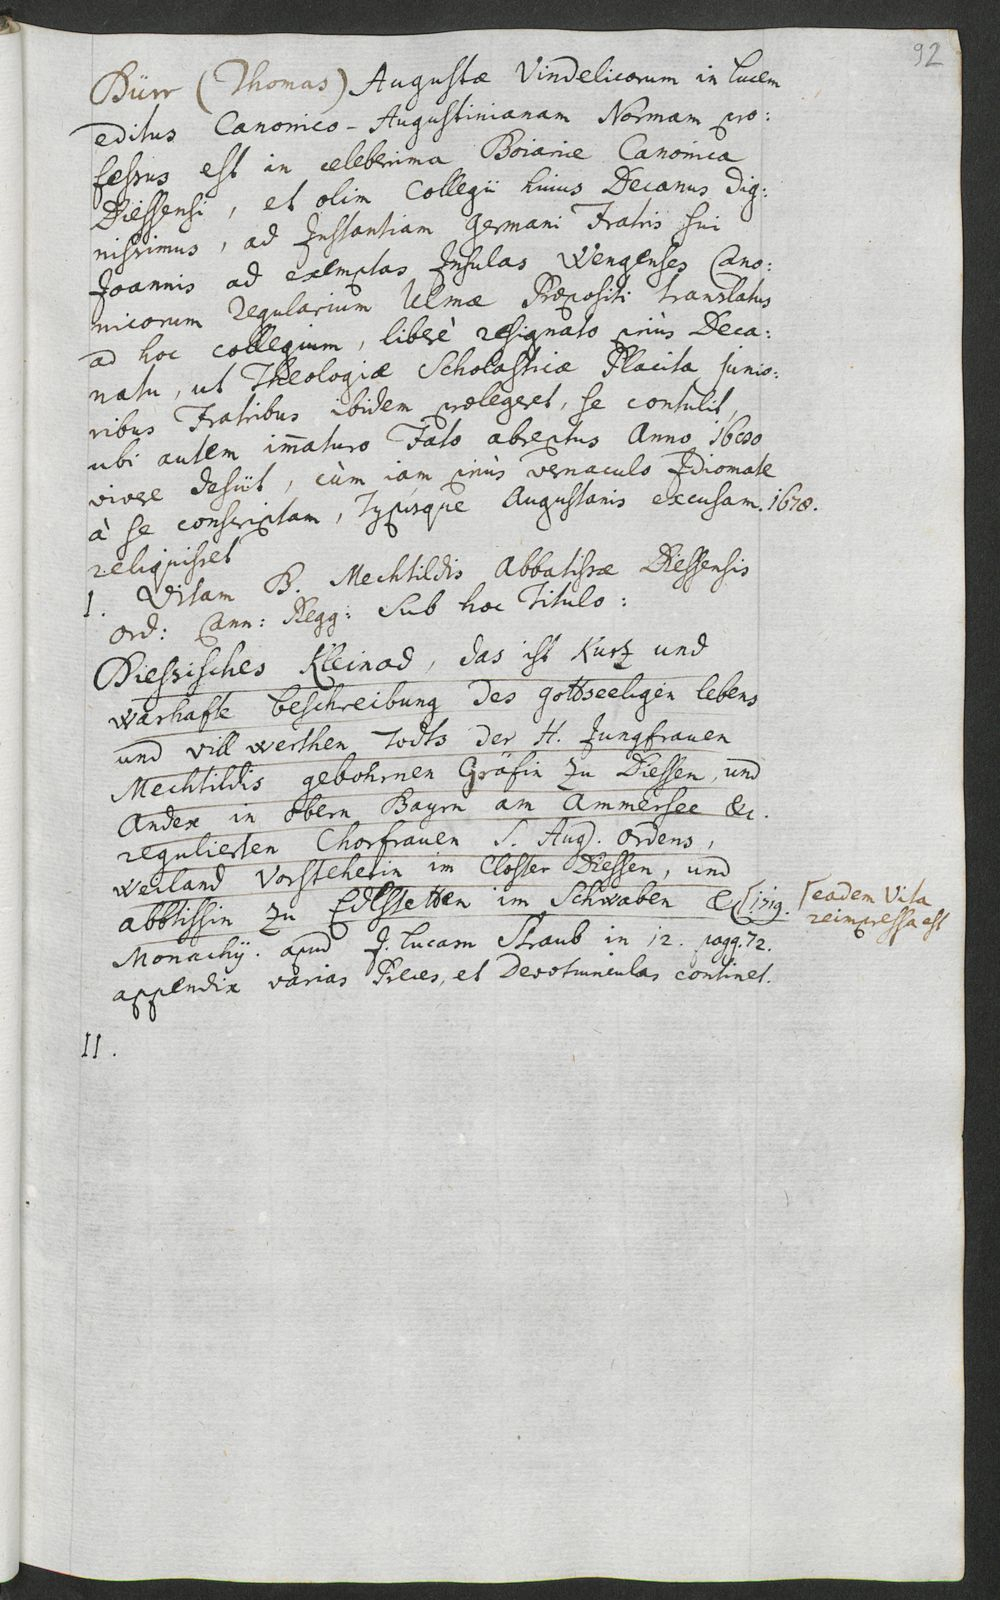 92
Bürr (Thomas) Augustæ Vindelicorum in lucem
editus Canonico-Augustinianam Normam pro:
fessus est in celeberima Boiariæ Canonica
Diessensi, et olim Collegii huius Decanus dig:
nissimus, ad Instantiam germani Fratris sui
Joannis ad exemptas Insulas Wengenses Cano:
nicorum regularium Ulmæ Præpositi translatus
ad hoc collegium, liberè resignato priùs Deca:
natu, ut Theologiæ Scholasticæ Placita junio:
ribus Fratribus ibidem prælegeret, se contulit,
ubi autem im̄aturo Fato abreptus Anno 1680
vivere desiit, cùm iam priùs vernaculo Idiomate
à se conscriptam, Typisque Augustanis excusam. 1678.
reliquisset
I. Vitam B. Mechtildis Abbatissæ Diessensis
ord: Cann: Regg: Sub hoc Titulo:
Diessisches Kleinod, das ist Kurtz und
warhafte beschreibung des gottseeligen lebens
und vill werthen Todts der H. Jungfrauen
Mechtildis gebohrnen Gräfin zu Diessen, und
Andex in obern Bayrn am Ammersee &c.
regulierten Chorfrauen S. Aug. ordens,
weiland Vorsteherin im Closter Diessen, und
abbtissin zu Edlstetten im Schwaben &c [1719. [eadem Vita
reimpressa est
Monachij. apud J. Lucam Straub in 12. pagg. 72.
appendix varias Preces, et Devotiunculas continet.
II.